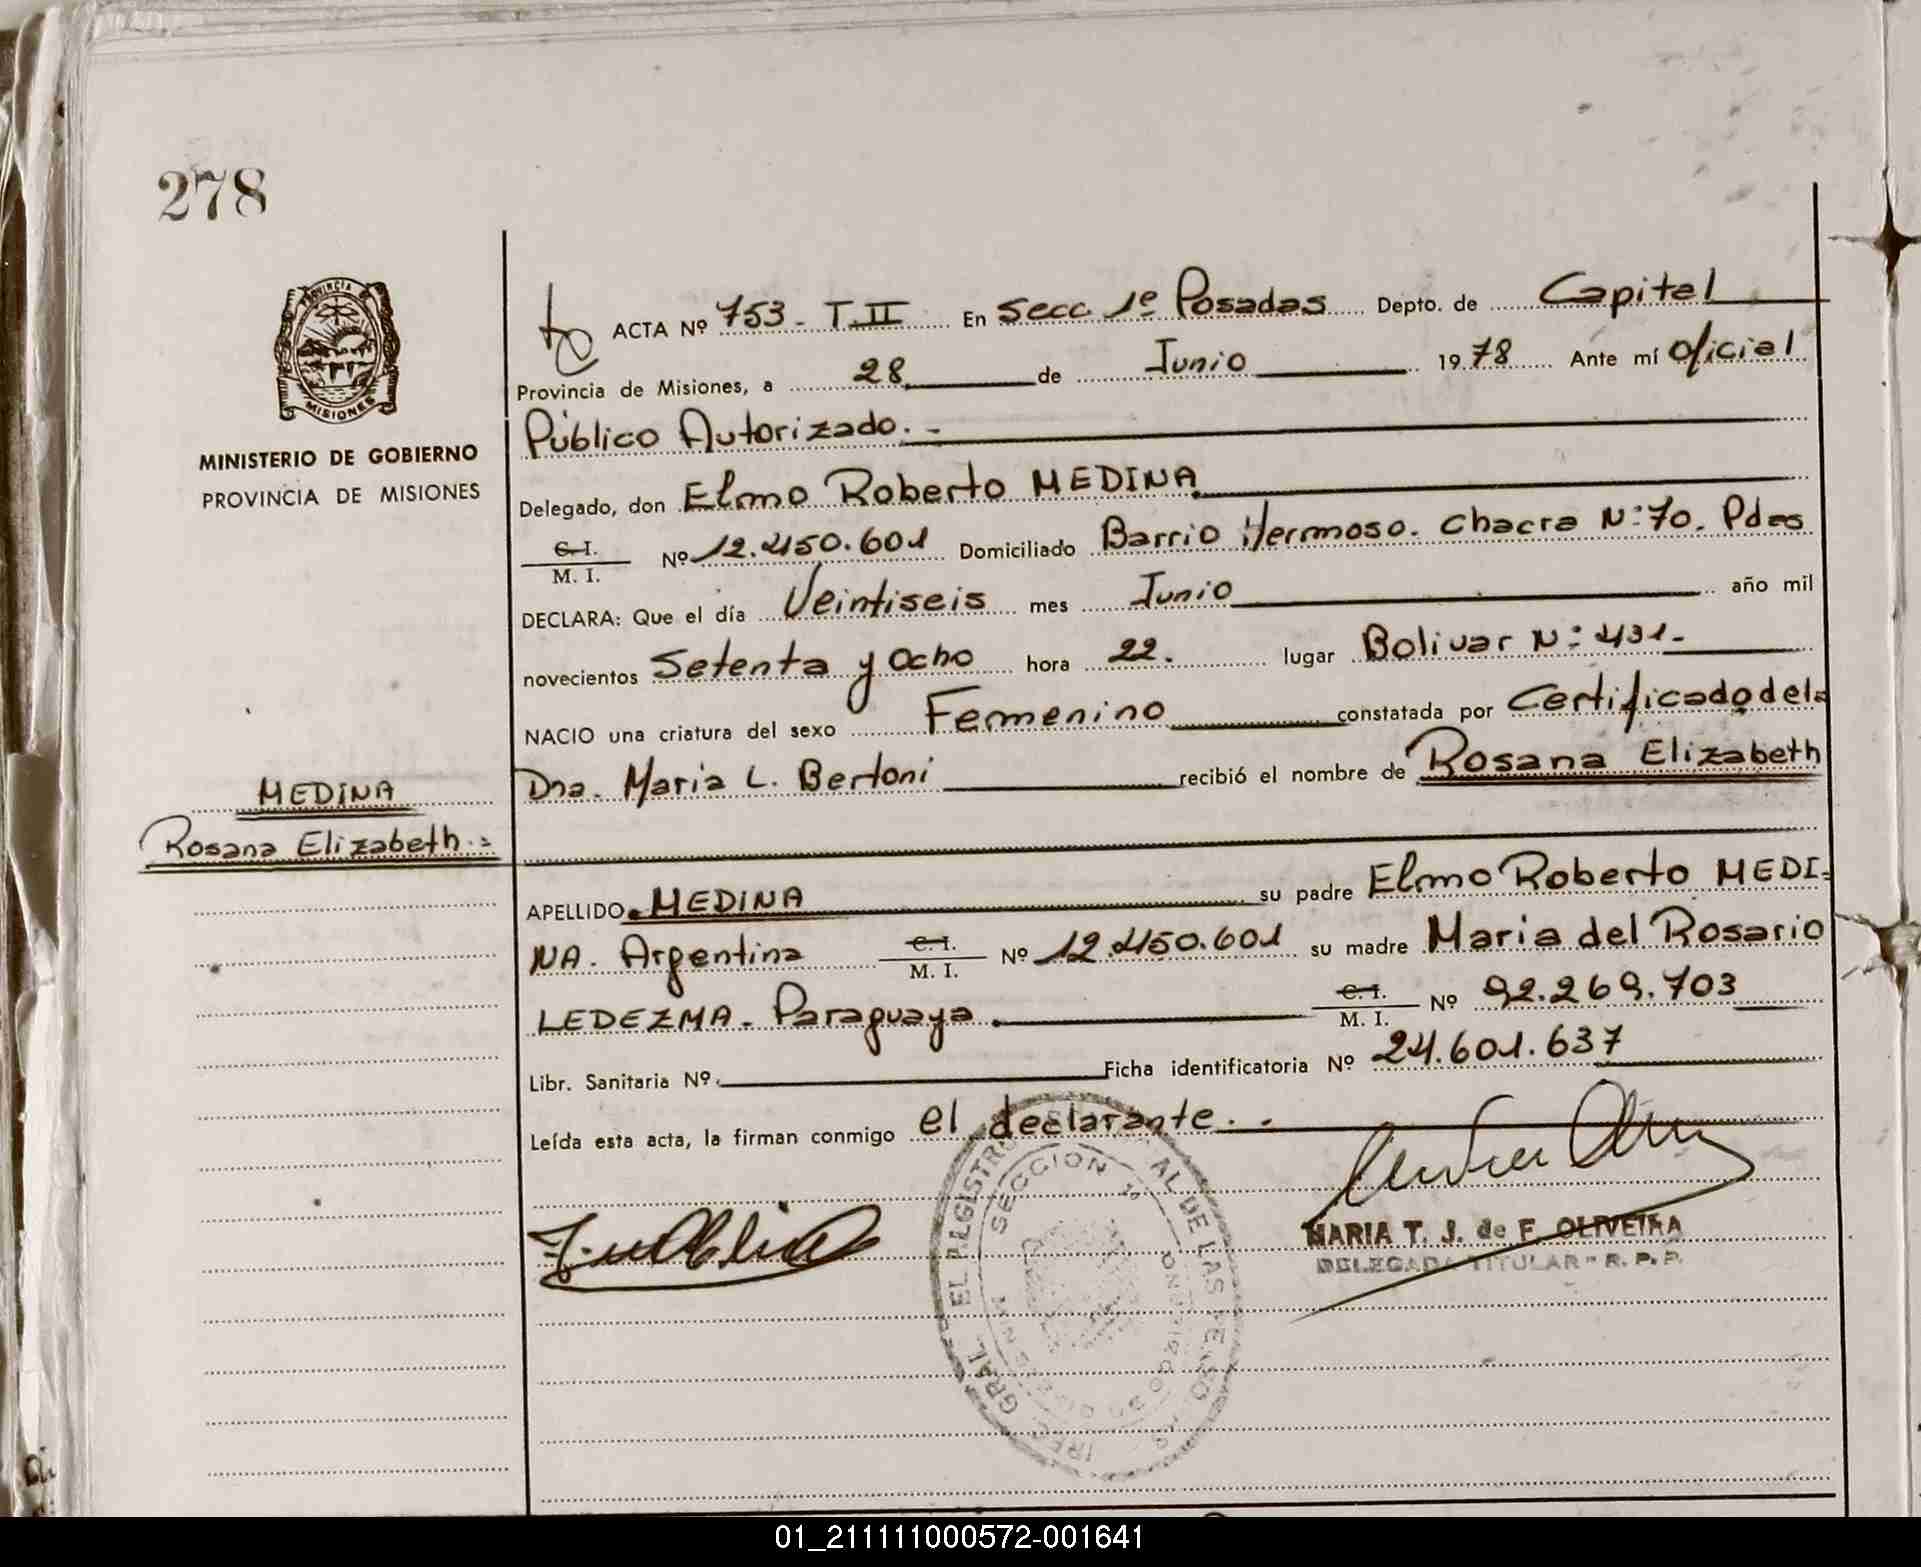 278
PROVINCIA DE
MISIONES
MINISTERIO DE GOBIERNO
PROVINCIA DE MISIONES
MEDINA
Rosana Elizabeth.=
ACTA Nº 753 - T.II En Secc 1º Posadas Depto. de Capital
Provincia de Misiones, a 28 de Junio 1978 Ante mí Oficial
Público Autorizado.-
Delegado, don Elmo Roberto MEDINA
C. I. / M. I. Nº 12.450.601 Domiciliado Barrio Hermoso. Chacra N:70. Pdas
DECLARA: Que el día Veintiseis mes Junio año mil
novecientos Setenta y Ocho hora 22. lugar Bolivar N: 431.-
NACIO una criatura del sexo Femenino constatada por Certificado de la
Dra. Maria L. Bertoni recibió el nombre de Rosana Elizabeth
APELLIDO MEDINA su padre Elmo Roberto MEDI=
NA. Argentina C. I. / M. I. Nº 12.450.601 su madre Maria del Rosario
LEDEZMA. Paraguaya. C. I. / M. I. Nº 92.269.703
Libr. Sanitaria Nº Ficha identificatoria Nº 24.601.637
Leída esta acta, la firman conmigo el declarante.-
SECCION 1º
MARIA T. J. de F. OLIVEIRA
DELEGADA TITULAR - R. P. P.
01_211111000572-001641